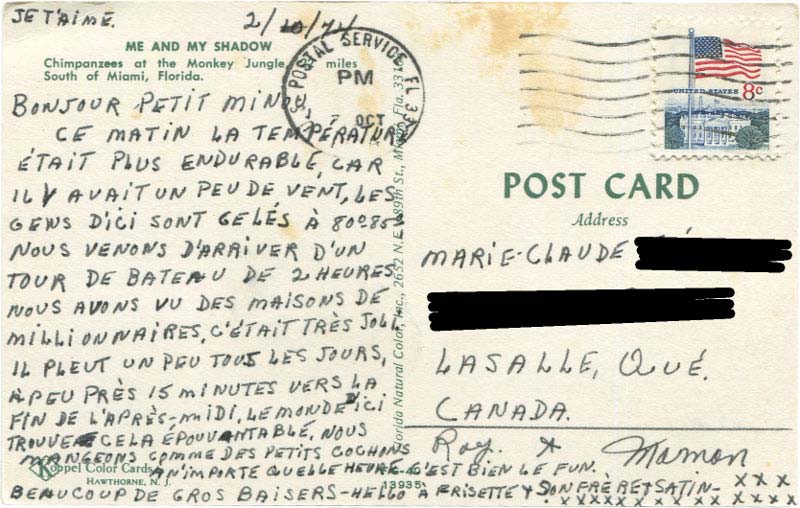 JE T'AIME.
2/10/71
ME AND MY SHADOW
Chimpanzees at the Monkey Jungle miles
South of Miami, Florida.
BONJOUR PETIT
CE MATIN LA TEMPÉRATURE
ÉTAIT PLUS ENDURABLE, CAR
IL Y AVAIT UN PEU DE VENT, LES
GENS D'ICI SONT GELÉS À 80º85º
NOUS VENONS D'ARRIVER D'UN
TOUR DE BATEAU DE 2 HEURES
NOUS AVONS VU DES MAISONS DE
MILLIONNAIRES, C'ÉTAIT TRÈS JOLI.
IL PLEUT UN PEU TOUS LES JOURS,
À PEU PRÈS 15 MINUTES VERS LA
FIN DE L'APRÈS-MIDI, LE MONDE D'ICI
TROUVE CELA ÉPOUVANTABLE, NOUS
MANGEONS COMME DES PETITS COCHONS
À N'IMPORTE QUELLE HEURE C'EST BIEN LE FUN.
BEAUCOUP DE GROS BAISERS-HELLO À FRISETTE & SON FRÈRE & SATIN-XXX
XXXXXXXXXX
Koppel Color Cards
HAWTHORNE, N. J.
13935
Florida Natural Color, Inc., 2652 N.E. 189th St., Miami, Fla. 331
POSTAL SERVICE, FL 33
PM
7 OCT
UNITED STATES 8c
POST CARD
Address
MARIE-CLAUDE
LASALLE, QUÉ.
CANADA.
Roy. & Maman